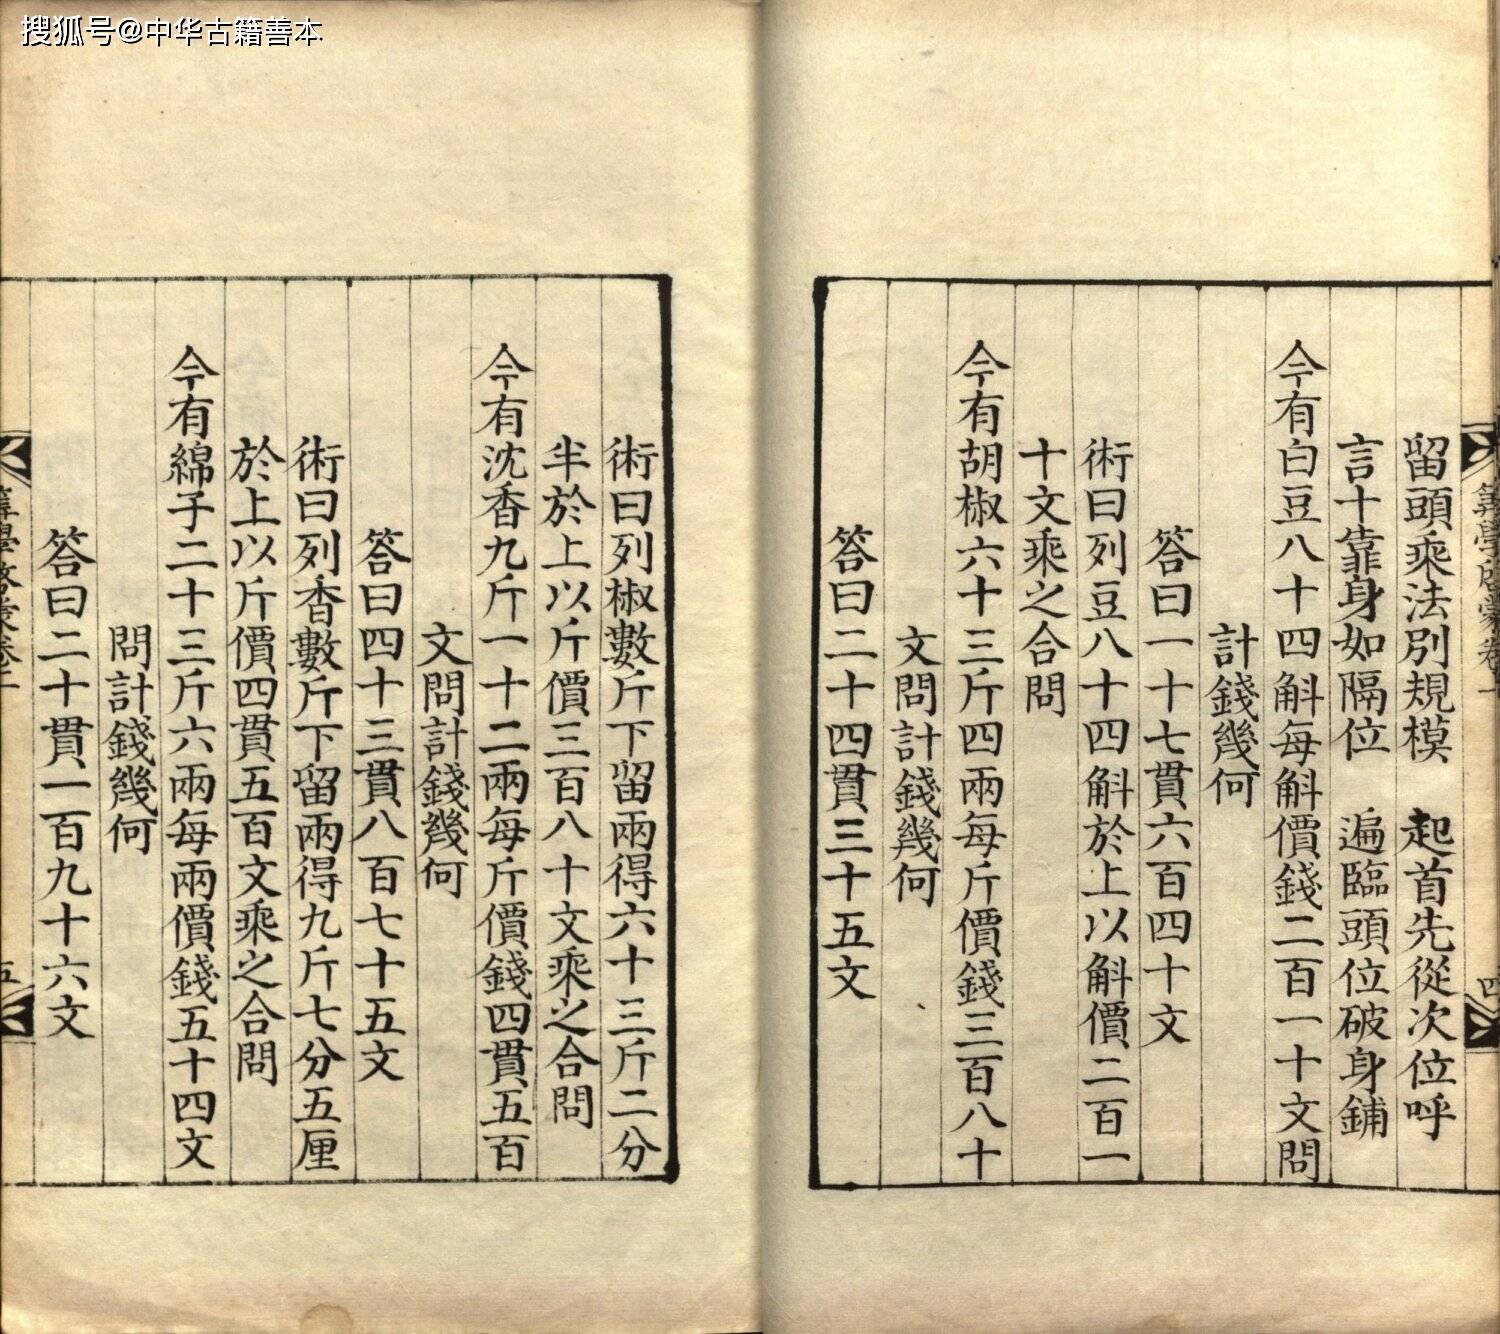 搜狐号@中华古籍善本
留頭乘法別規模　起首先從次位呼
言十靠身如隔位　遍臨頭位破身鋪
今有白豆八十四斛每斛價錢二百一十文問
計錢幾何
答曰一十七貫六百四十文
術曰列豆八十四斛於上以斛價二百一
十文乘之合問
今有胡椒六十三斤四兩每斤價錢三百八十
文問計錢幾何
答曰二十四貫三十五文
術曰列椒數斤下留兩得六十三斤二分
半於上以斤價三百八十文乘之合問
今有沈香九斤一十二兩每斤價錢四貫五百
文問計錢幾何
答曰四十三貫八百七十五文
術曰列香數斤下留兩得九斤七分五厘
於上以斤價四貫五百文乘之合問
今有綿子二十三斤六兩每兩價錢五十四文
問計錢幾何
答曰二十貫一百九十六文
五